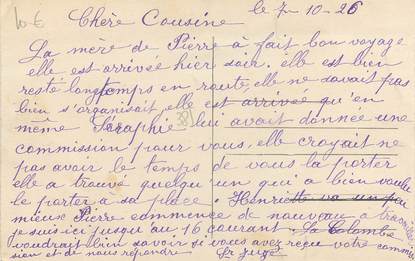 le 7-10-26
10 €
Chère Cousine
La mère de Pierre à fait bon voyage
elle est arrivée hier soir. elle est bien
resté longtemps en route, elle ne davait pas
bien s'organisait, elle est arrivée qu'en
même Séraphie lui avait dannée une
38
commission pour vous, elle croyait ne
pas avoir le temps de vous la porter
elle a trouvé quelqu'un qui a bien voulu
le porter à sa place. Henriette va un peu
mieux Pierre commence de nouveau a travailler
je suis ici jusqu'au 16 courant. La Colombe
voudrait bien savoir si vous avez reçu votre commis
sion et de nous répondre